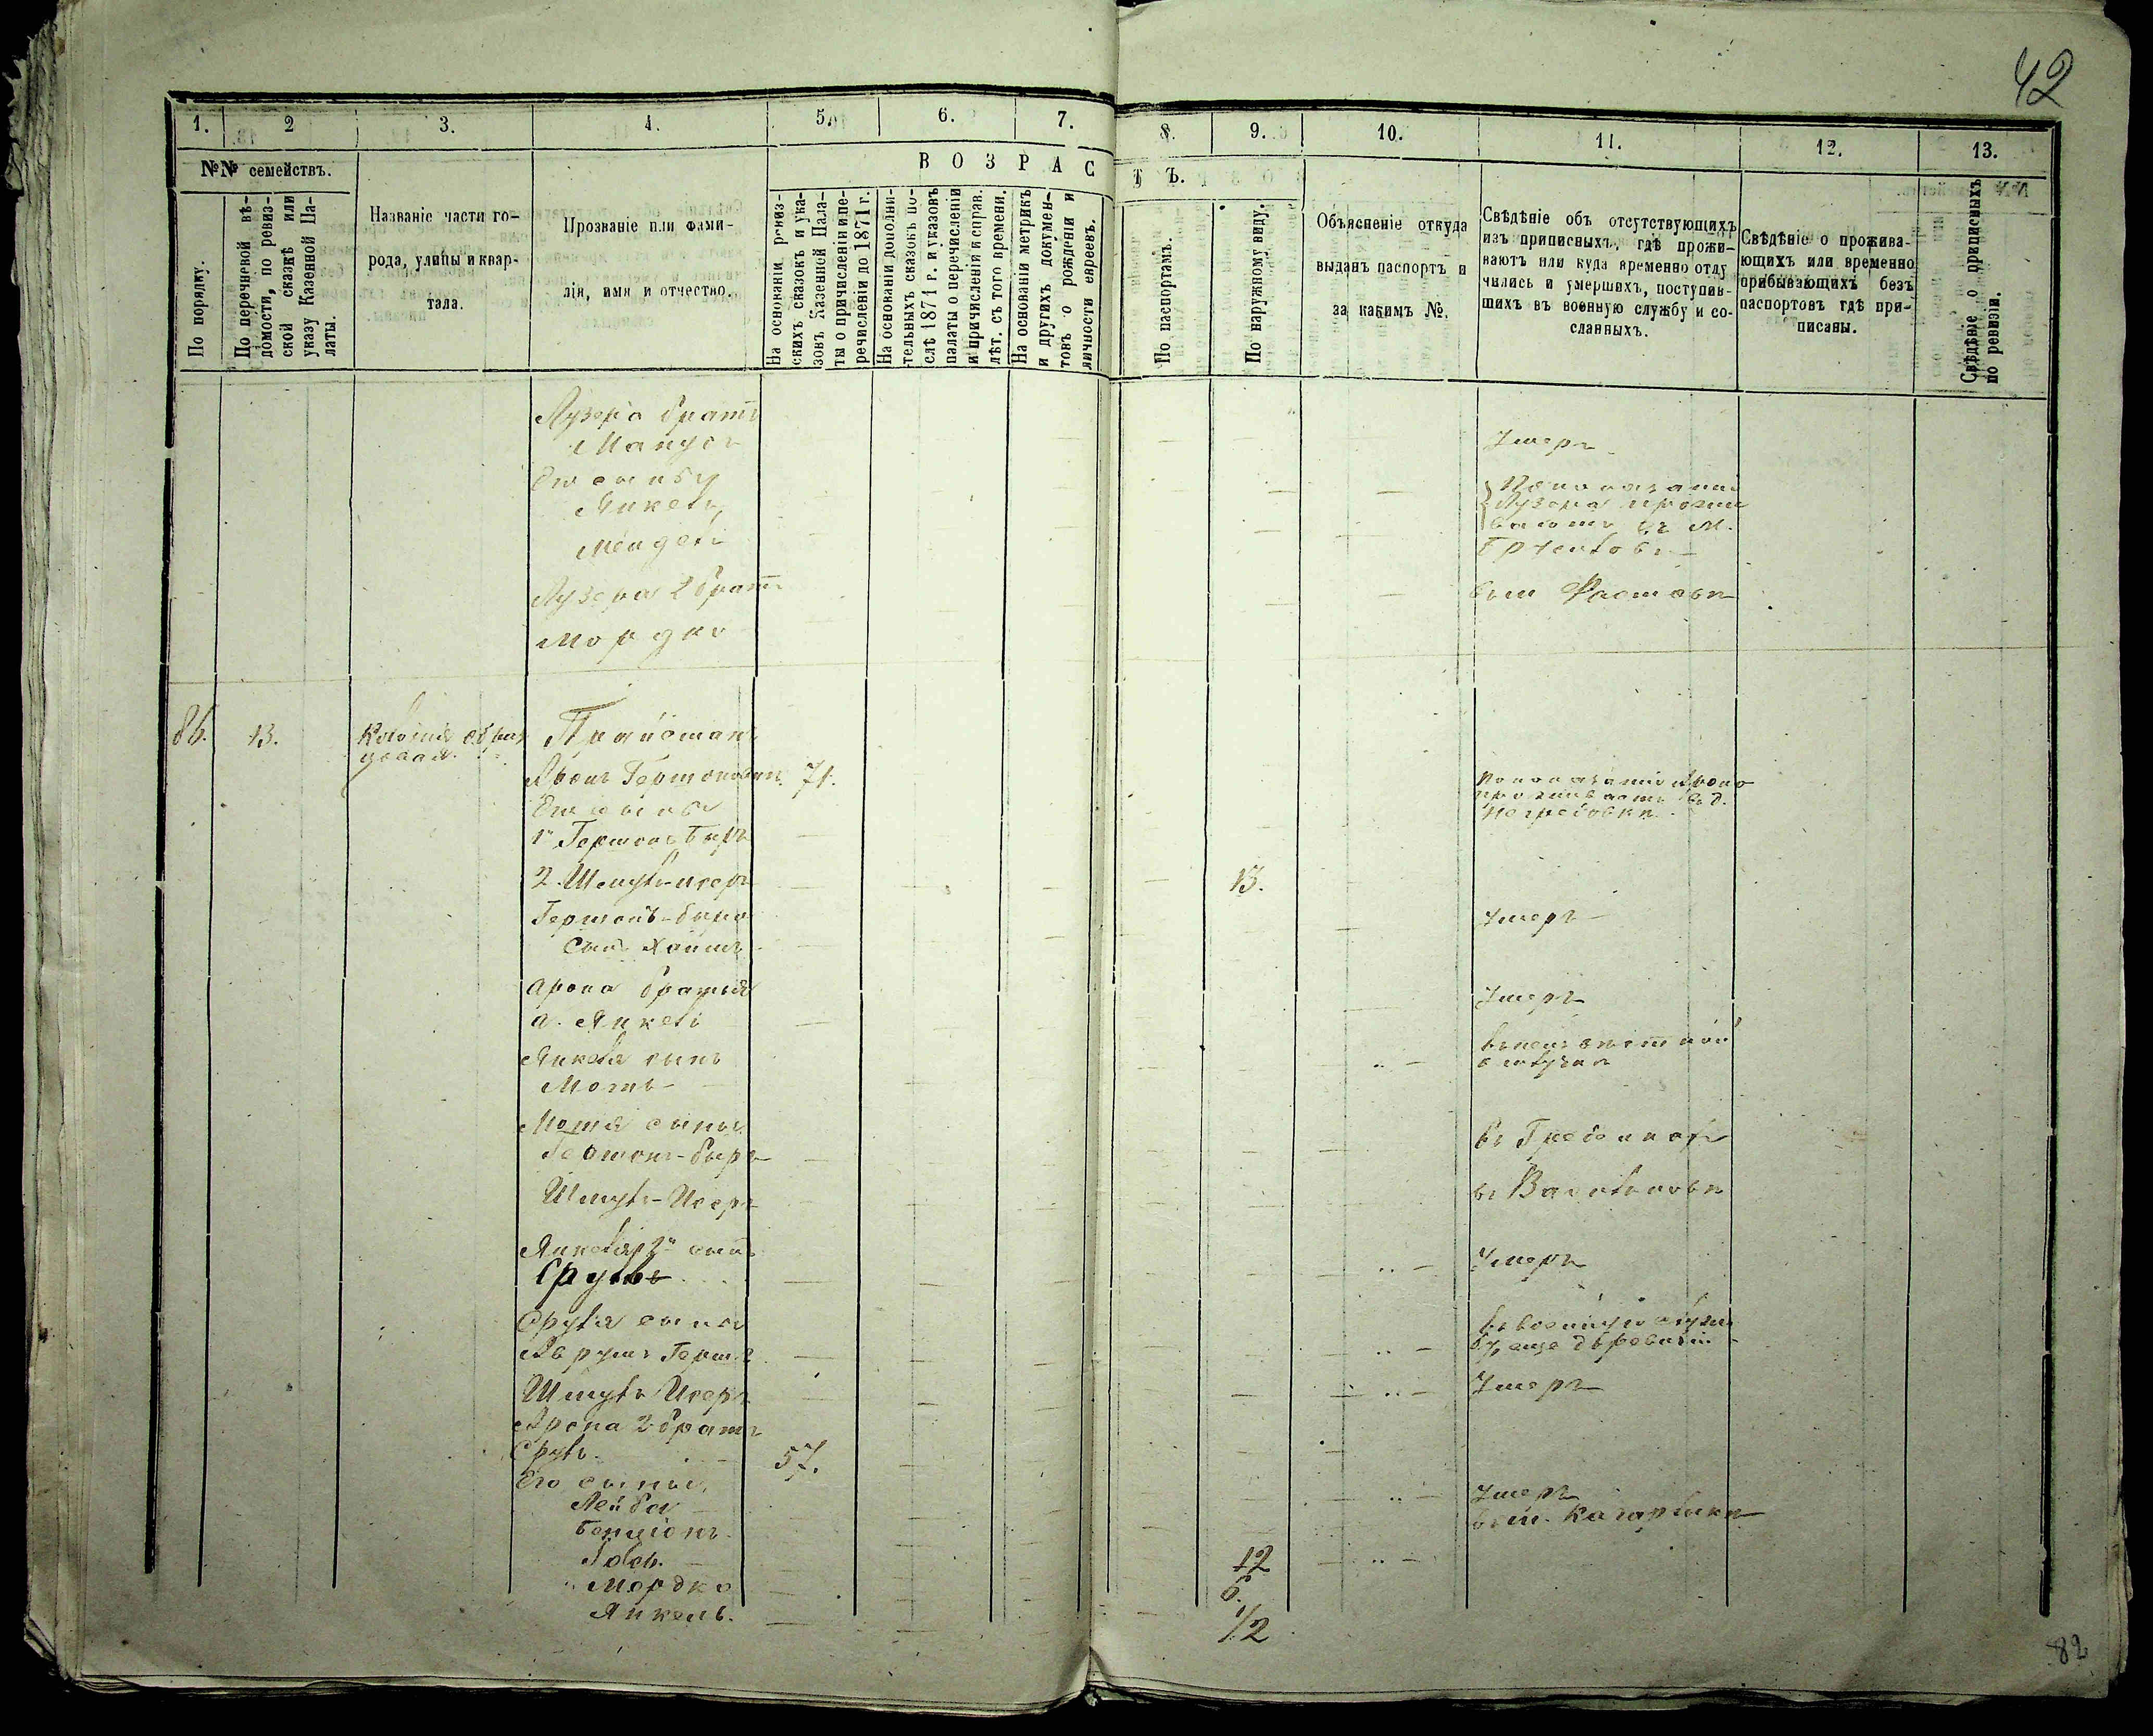 42
1. 2 3. 4. 5. 6. 7. 8. 9. 10. 11. 12. 13.
№№ семействъ.
По порядку.
По перечневой вѣ-
домости, по ревиз-
ской сказкѣ или
указу Казенной Па-
латы.
Названіе части го-
рода, улицы и квар-
тала.
Прозваніе или фами-
лія, имя и отчество.
ВОЗРАСТЪ.
На основаніи ревиз-
скихъ сказокъ и ука-
зовъ Казенной Пала-
ты о причисленіи и пе-
речисленіи до 1871 г.
На основаніи дополни-
тельныхъ сказокъ по-
слѣ 1871 г. и указовъ
палаты о перечисленіи
и причисленіи и справ.
лѣт. съ того времени.
На основаніи метрикъ
и другихъ докумен-
товъ о рожденіи и
личности евреевъ.
По паспортамъ.
По наружному виду.
Объясненіе откуда
выданъ паспортъ и
за какимъ №.
Свѣдѣніе объ отсутствующихъ
изъ приписныхъ, гдѣ прожи-
ваютъ или куда временно отлу
чились и умершихъ, поступив-
шихъ въ военную службу и со-
сланныхъ.
Свѣдѣніе о прожива-
ющихъ или временно
прибывающихъ безъ
паспортовъ гдѣ при-
писаны.
Свѣдѣніе о приписныхъ
по ревизіи.
Лузера братъ
Манусъ
Умеръ
Его сыновья
Янкель
Мендель
По показанію
Лузера прожи
ваютъ въ м.
Лузера 2 братъ
Мордко
въ м Фастовѣ
86. 13. Колонія образ
цовая.
Аронъ Гершоновичъ 71.
По показанію Арона
проживаетъ въ д.
Его сынъ
1й Гершонъ Беръ
2. Шмуль-Исеръ 13.
Гершонъ-Бера
сынъ Хаимъ
Умеръ
Арона братья
а. Янкель
Умеръ
Янкеля сынъ
Моть
въ неизвѣстной
отлучкѣ
Мотя сыны
Гершонъ-Беръ
въ Гребинкахъ
Шмуль-Исеръ
въ Васильковѣ
Янкеля 2й сынъ
Сруль
Умеръ
Сруля сыны
Аврумъ Герш.
въ военную служ
бу
Шмуль Исеръ
Умеръ
Арона 2 братъ
Сруль. 57.
Его сыны
Лейба
Умеръ
Бенціонъ
въ м. Кагарлыкѣ
12
Мордко 6.
Янкель. 1/2
82